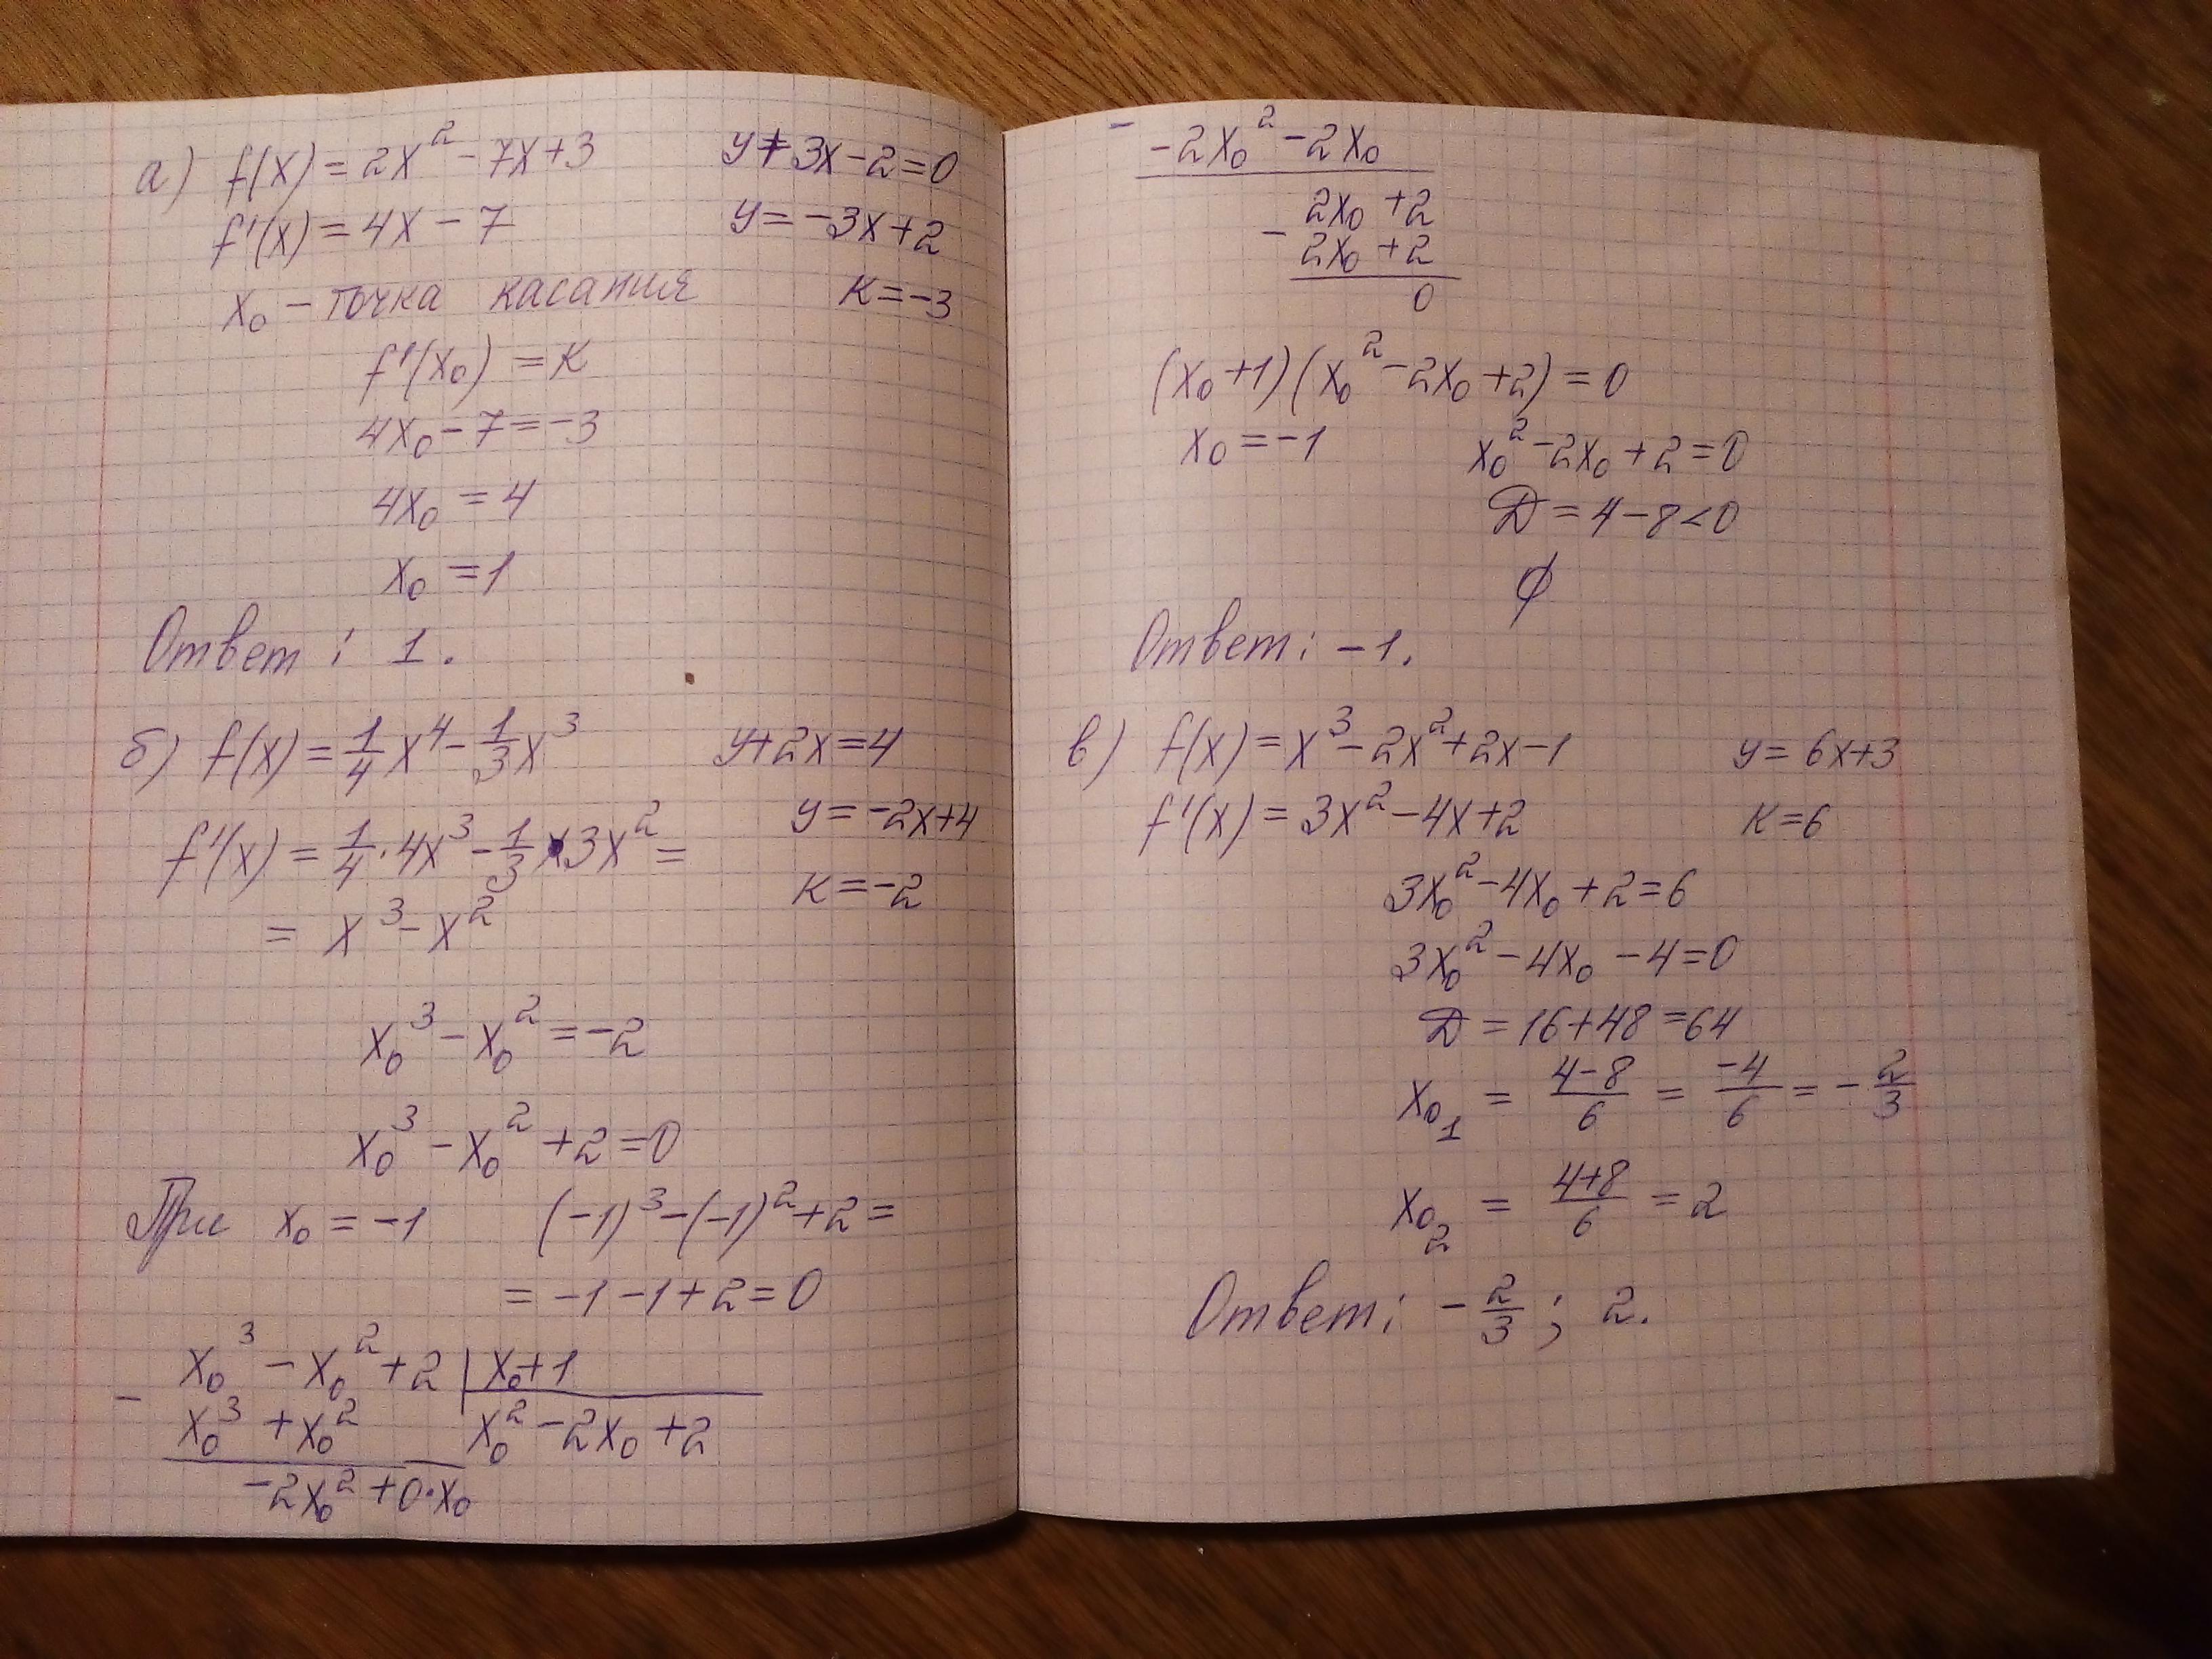 а) f(x) = 2x² - 7x + 3 y + 3x - 2 = 0
f'(x) = 4x - 7 y = -3x + 2
x₀ - точка касания к = -3
f'(x₀) = к
4x₀ - 7 = -3
4x₀ = 4
x₀ = 1
Ответ: 1.
б) f(x) = 1/4 x⁴ - 1/3 x³ y + 2x = 4
f'(x) = 1/4 · 4x³ - 1/3 · 3x² = y = -2x + 4
= x³ - x² к = -2
x₀³ - x₀² = -2
x₀³ - x₀² + 2 = 0
При x₀ = -1 (-1)³ - (-1)² + 2 =
= -1 - 1 + 2 = 0
x₀³ - x₀² + 2 | x₀ + 1
- x₀³ + x₀² x₀² - 2x₀ + 2
-2x₀² + 0·x₀
- -2x₀² - 2x₀
2x₀ + 2
- 2x₀ + 2
0
(x₀ + 1)(x₀² - 2x₀ + 2) = 0
x₀ = -1 x₀² - 2x₀ + 2 = 0
Д = 4 - 8 < 0
∅
Ответ: -1.
в) f(x) = x³ - 2x² + 2x - 1 y = 6x + 3
f'(x) = 3x² - 4x + 2 к = 6
3x₀² - 4x₀ + 2 = 6
3x₀² - 4x₀ - 4 = 0
Д = 16 + 48 = 64
x₀₁ = (4-8)/6 = -4/6 = -2/3
x₀₂ = (4+8)/6 = 2
Ответ: -2/3; 2.